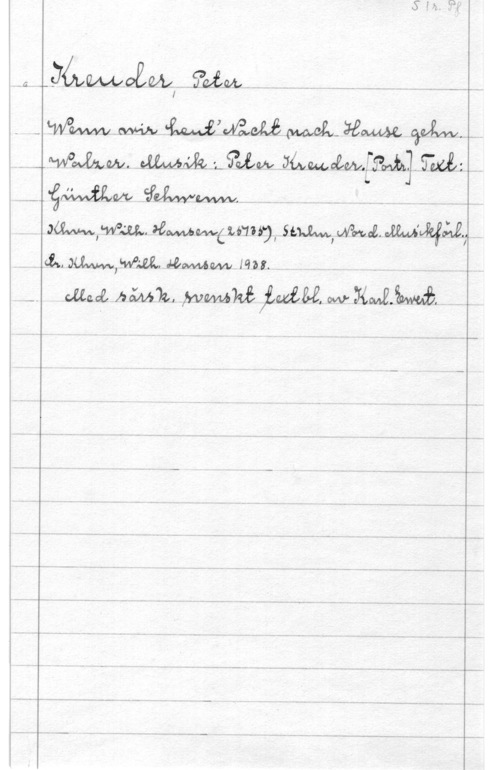 S 1 r. Pf
Kreuder, Peter
Wenn wir heut' Nacht nach Hause gehn.
Walzer. Musik: Peter Kreuder. [Portr.] Text:
Günther Schwenn.
Khvn, Wilh. Hansen (25735), Sthlm, Nord. Musikförl.;
tr. Khvn, Wilh. Hansen 1938.
Med särsk. svenskt textbl. av Karl-Ewert.